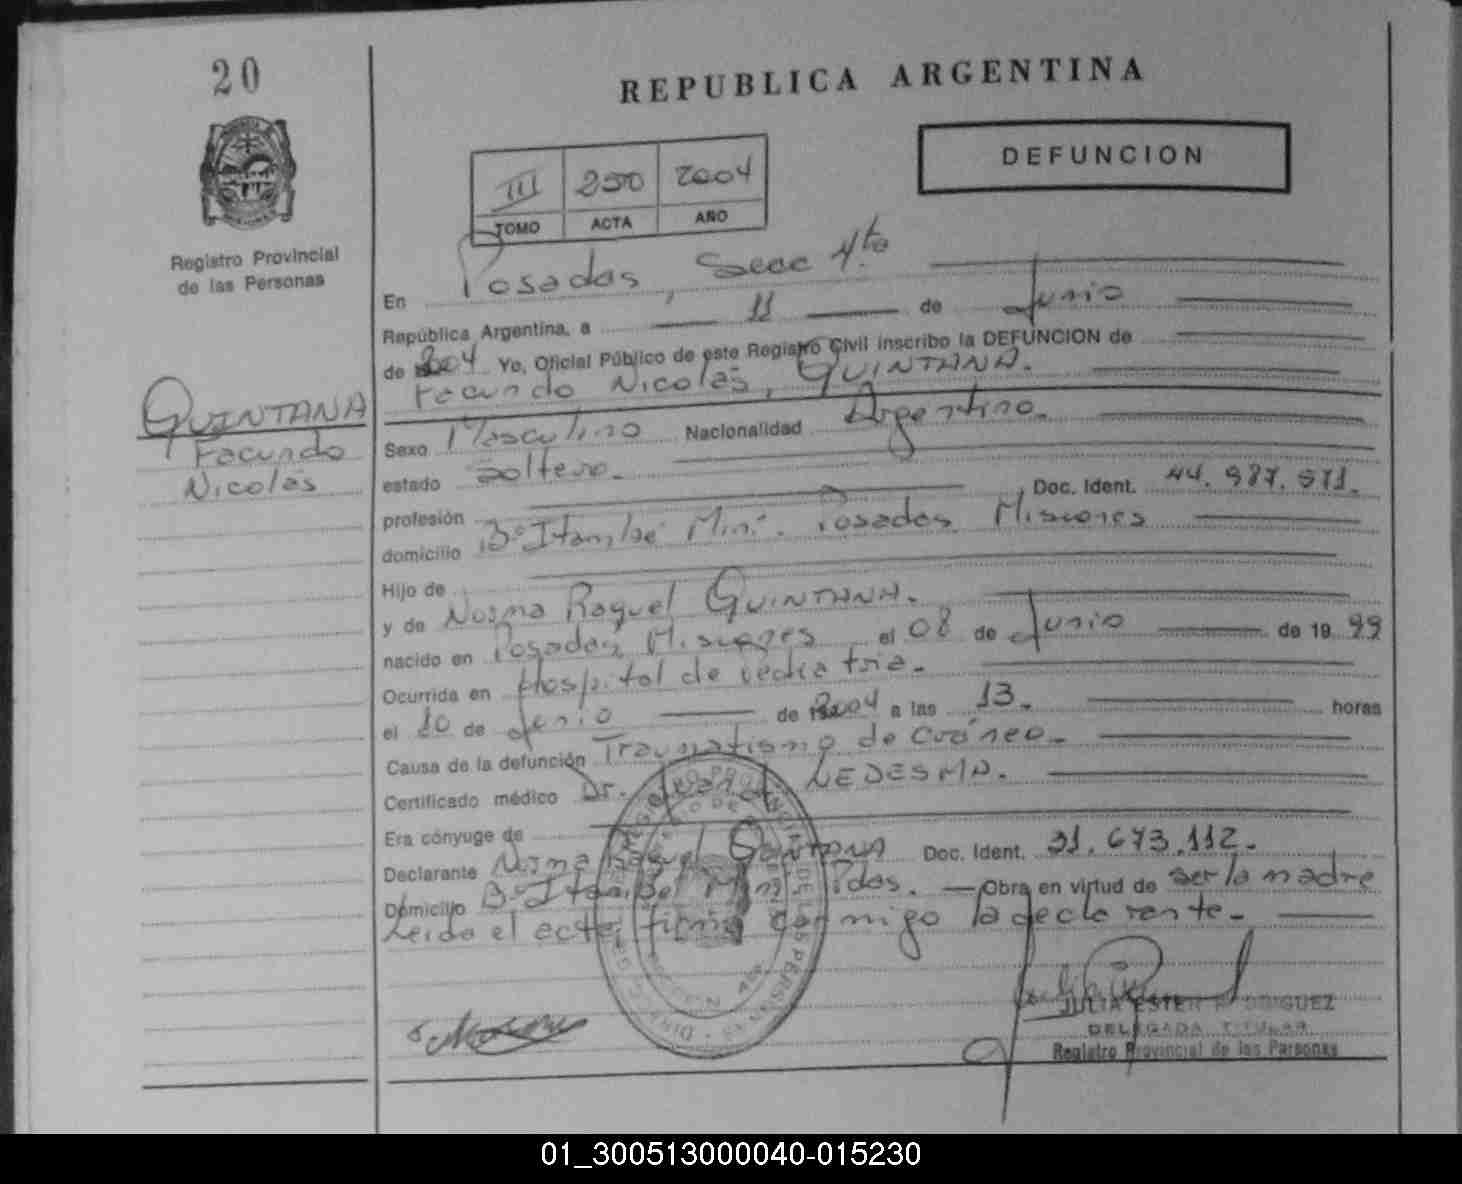 20
REPUBLICA ARGENTINA
DEFUNCION
III 250 2004
TOMO ACTA AÑO
Registro Provincial
de las Personas
En Posadas, Secc 4ta
República Argentina, a 11 de Junio
de 2004 Yo, Oficial Público de este Registro Civil inscribo la DEFUNCION de
Facundo Nicolás, QUINTANA.
QUINTANA
Facundo
Nicolás
Sexo Masculino Nacionalidad Argentino.
estado Soltero.
profesión Doc. Ident. 44.987.971.
domicilio Bº Itambé Miní. Posadas Misiones
Hijo de
y de Norma Raquel QUINTANA.
nacido en Posadas, Misiones el 08 de Junio de 1999
Ocurrida en Hospital de Pediatria.
el 10 de Junio de 2004 a las 13. horas
Causa de la defunción Traumatismo de Cráneo.
Certificado médico Dr. LEDESMA.
Era cónyuge de
Declarante Norma Raquel Quintana Doc. Ident. 31.673.112.
Domicilio Bº Itambé Miní Pdas. Obra en virtud de ser la madre
Leida el acta, firma conmigo la declarante.
JULIA ESTER RODRIGUEZ
DELEGADA TITULAR
Registro Provincial de las Personas
01_300513000040-015230